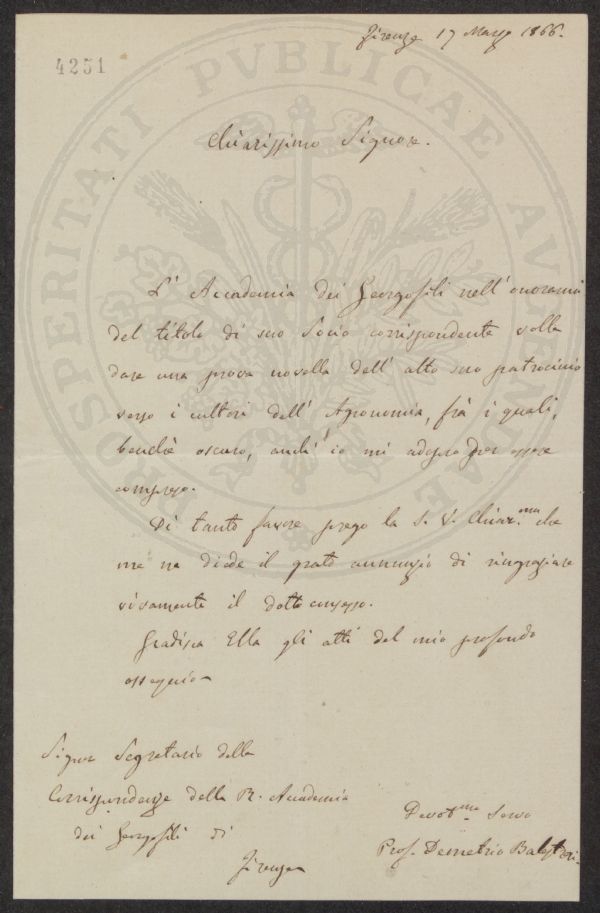 Firenze 17 Marzo 1866.
4251
PROSPERITATI PVBLICAE AVGENDAE
Chiarissimo Signore.
L' Accademia dei Georgofili nell' onorarmi
del titolo di suo Socio corrispondente volle
dare una prova novella dell' alto suo patrocinio
verso i cultori dell' Agronomia, frà i quali,
benchè oscuro, anch' io mi adopro per essere
compreso.
Di tanto favore prego la S. V. Chiar.ma che
me ne diede il grato annunzio di ringraziare
vivamente il dotto consesso.
Gradisca Ella gli atti del mio profondo
ossequio
Signor Segretario delle
Corrispondenze della R. Accademia
dei Georgofili di
Firenze
Devot.mo Servo
Prof. Demetrio